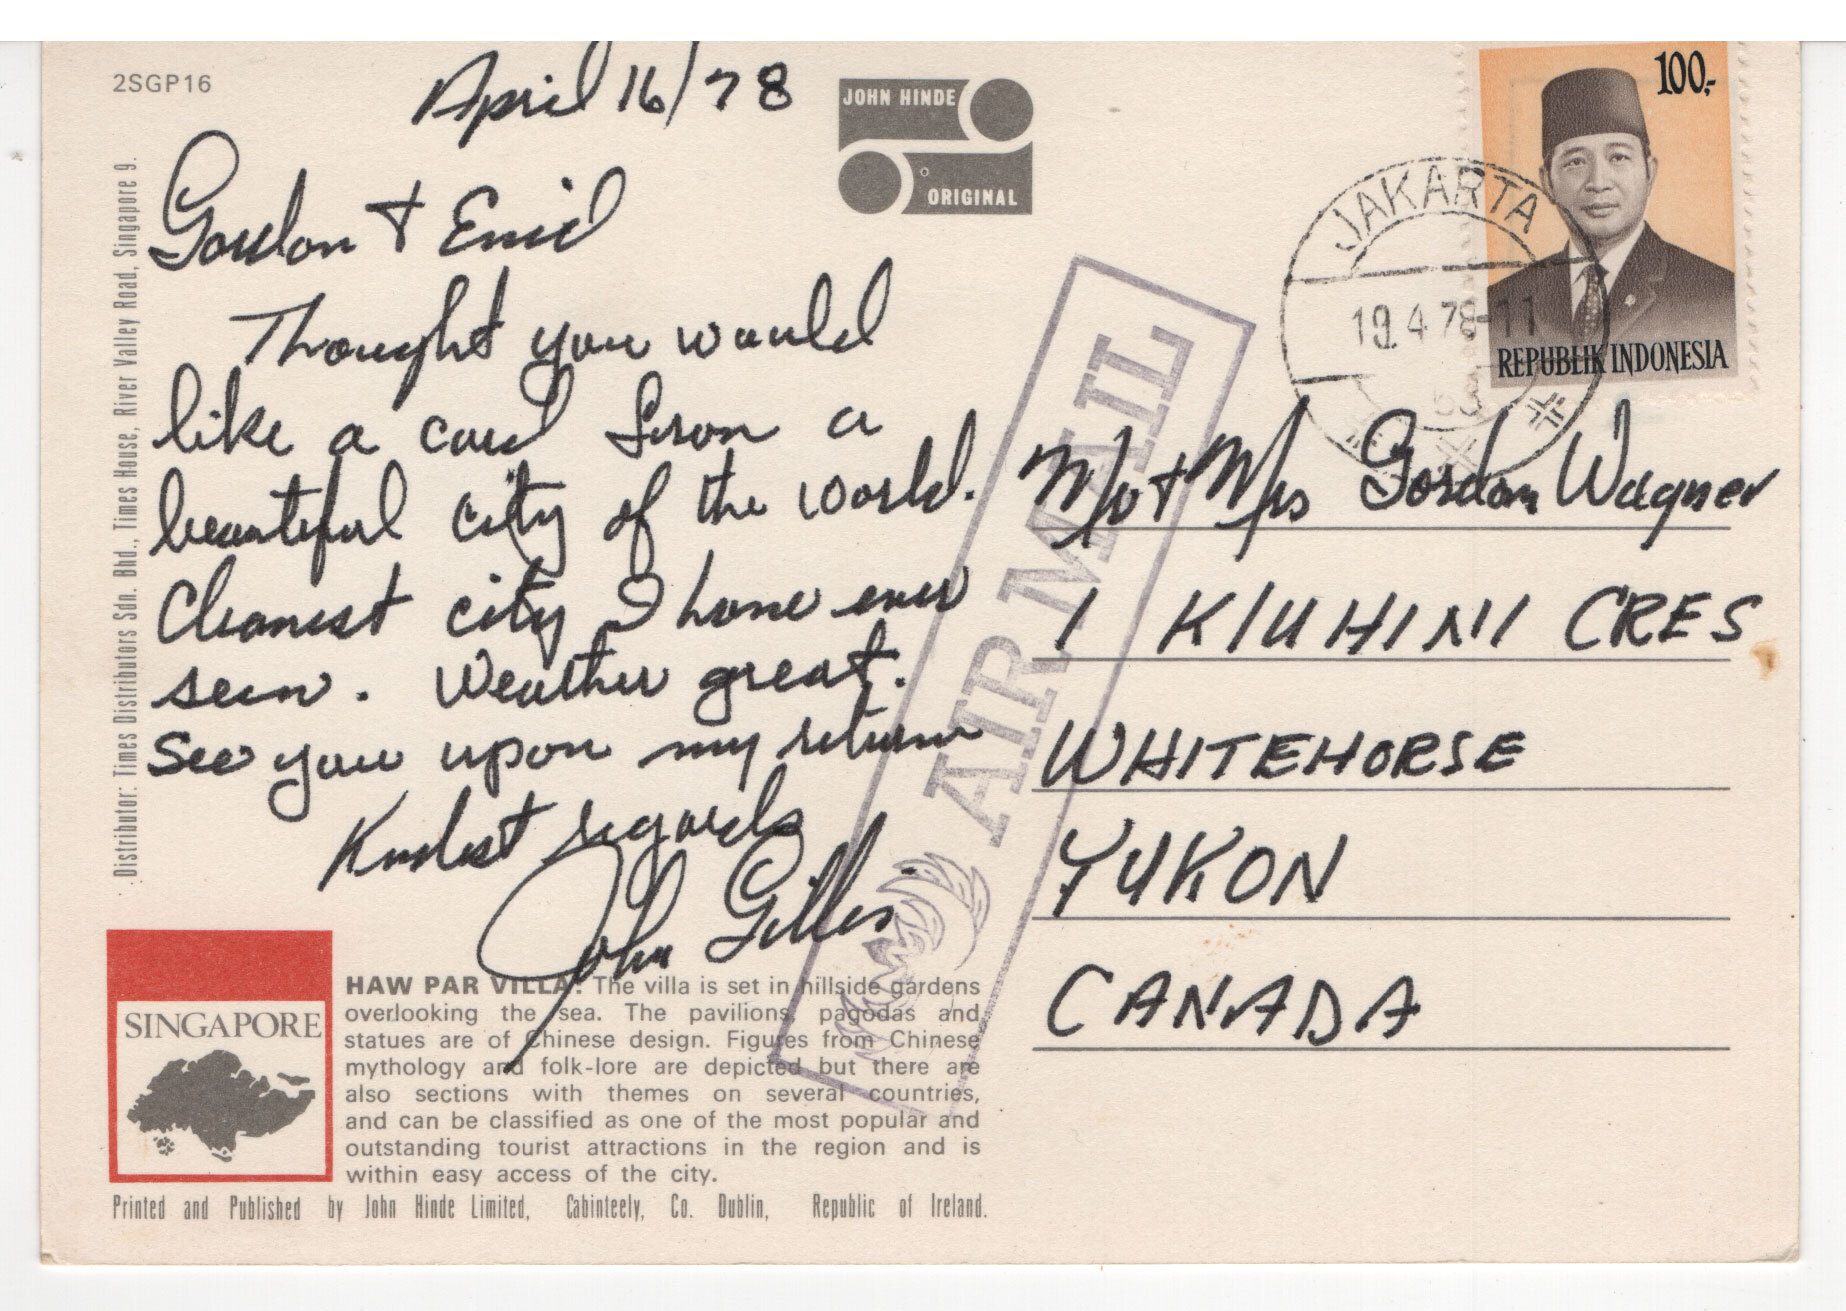 2SGP16
April 16/78
JOHN HINDE
ORIGINAL
Gordon + Enid
Thought you would
like a card from a
beautiful city of the world.
Cleanest city I have ever
seen. Weather great.
See you upon my return
Kindest regards
John Gillis
Distributor: Times Distributors Sdn. Bhd., Times House, River Valley Road, Singapore 9.
SINGAPORE
HAW PAR VILLA: The villa is set in hillside gardens
overlooking the sea. The pavilions, pagodas and
statues are of Chinese design. Figures from Chinese
mythology and folk-lore are depicted but there are
also sections with themes on several countries,
and can be classified as one of the most popular and
outstanding tourist attractions in the region and is
within easy access of the city.
Printed and Published by John Hinde Limited, Cabinteely, Co. Dublin, Republic of Ireland.
AIR MAIL
100,-
REPUBLIK INDONESIA
JAKARTA
19.4.78-11
Mr + Mrs Gordon Wagner
1 KLUHINI CRES
WHITEHORSE
YUKON
CANADA